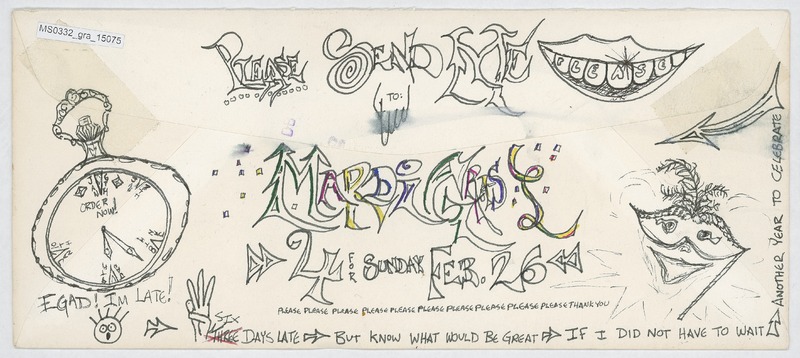 MS0332_gra_15075
PLEASE SEND ME PLEASE
TO:
MARDI GRAS
4 FOR SUNDAY FEB. 26
ORDER NOW!
EGAD! I'M LATE!
PLEASE PLEASE PLEASE PLEASE PLEASE PLEASE PLEASE PLEASE PLEASE PLEASE THANK YOU
SIX
THREE DAYS LATE BUT KNOW WHAT WOULD BE GREAT IF I DID NOT HAVE TO WAIT
ANOTHER YEAR TO CELEBRATE